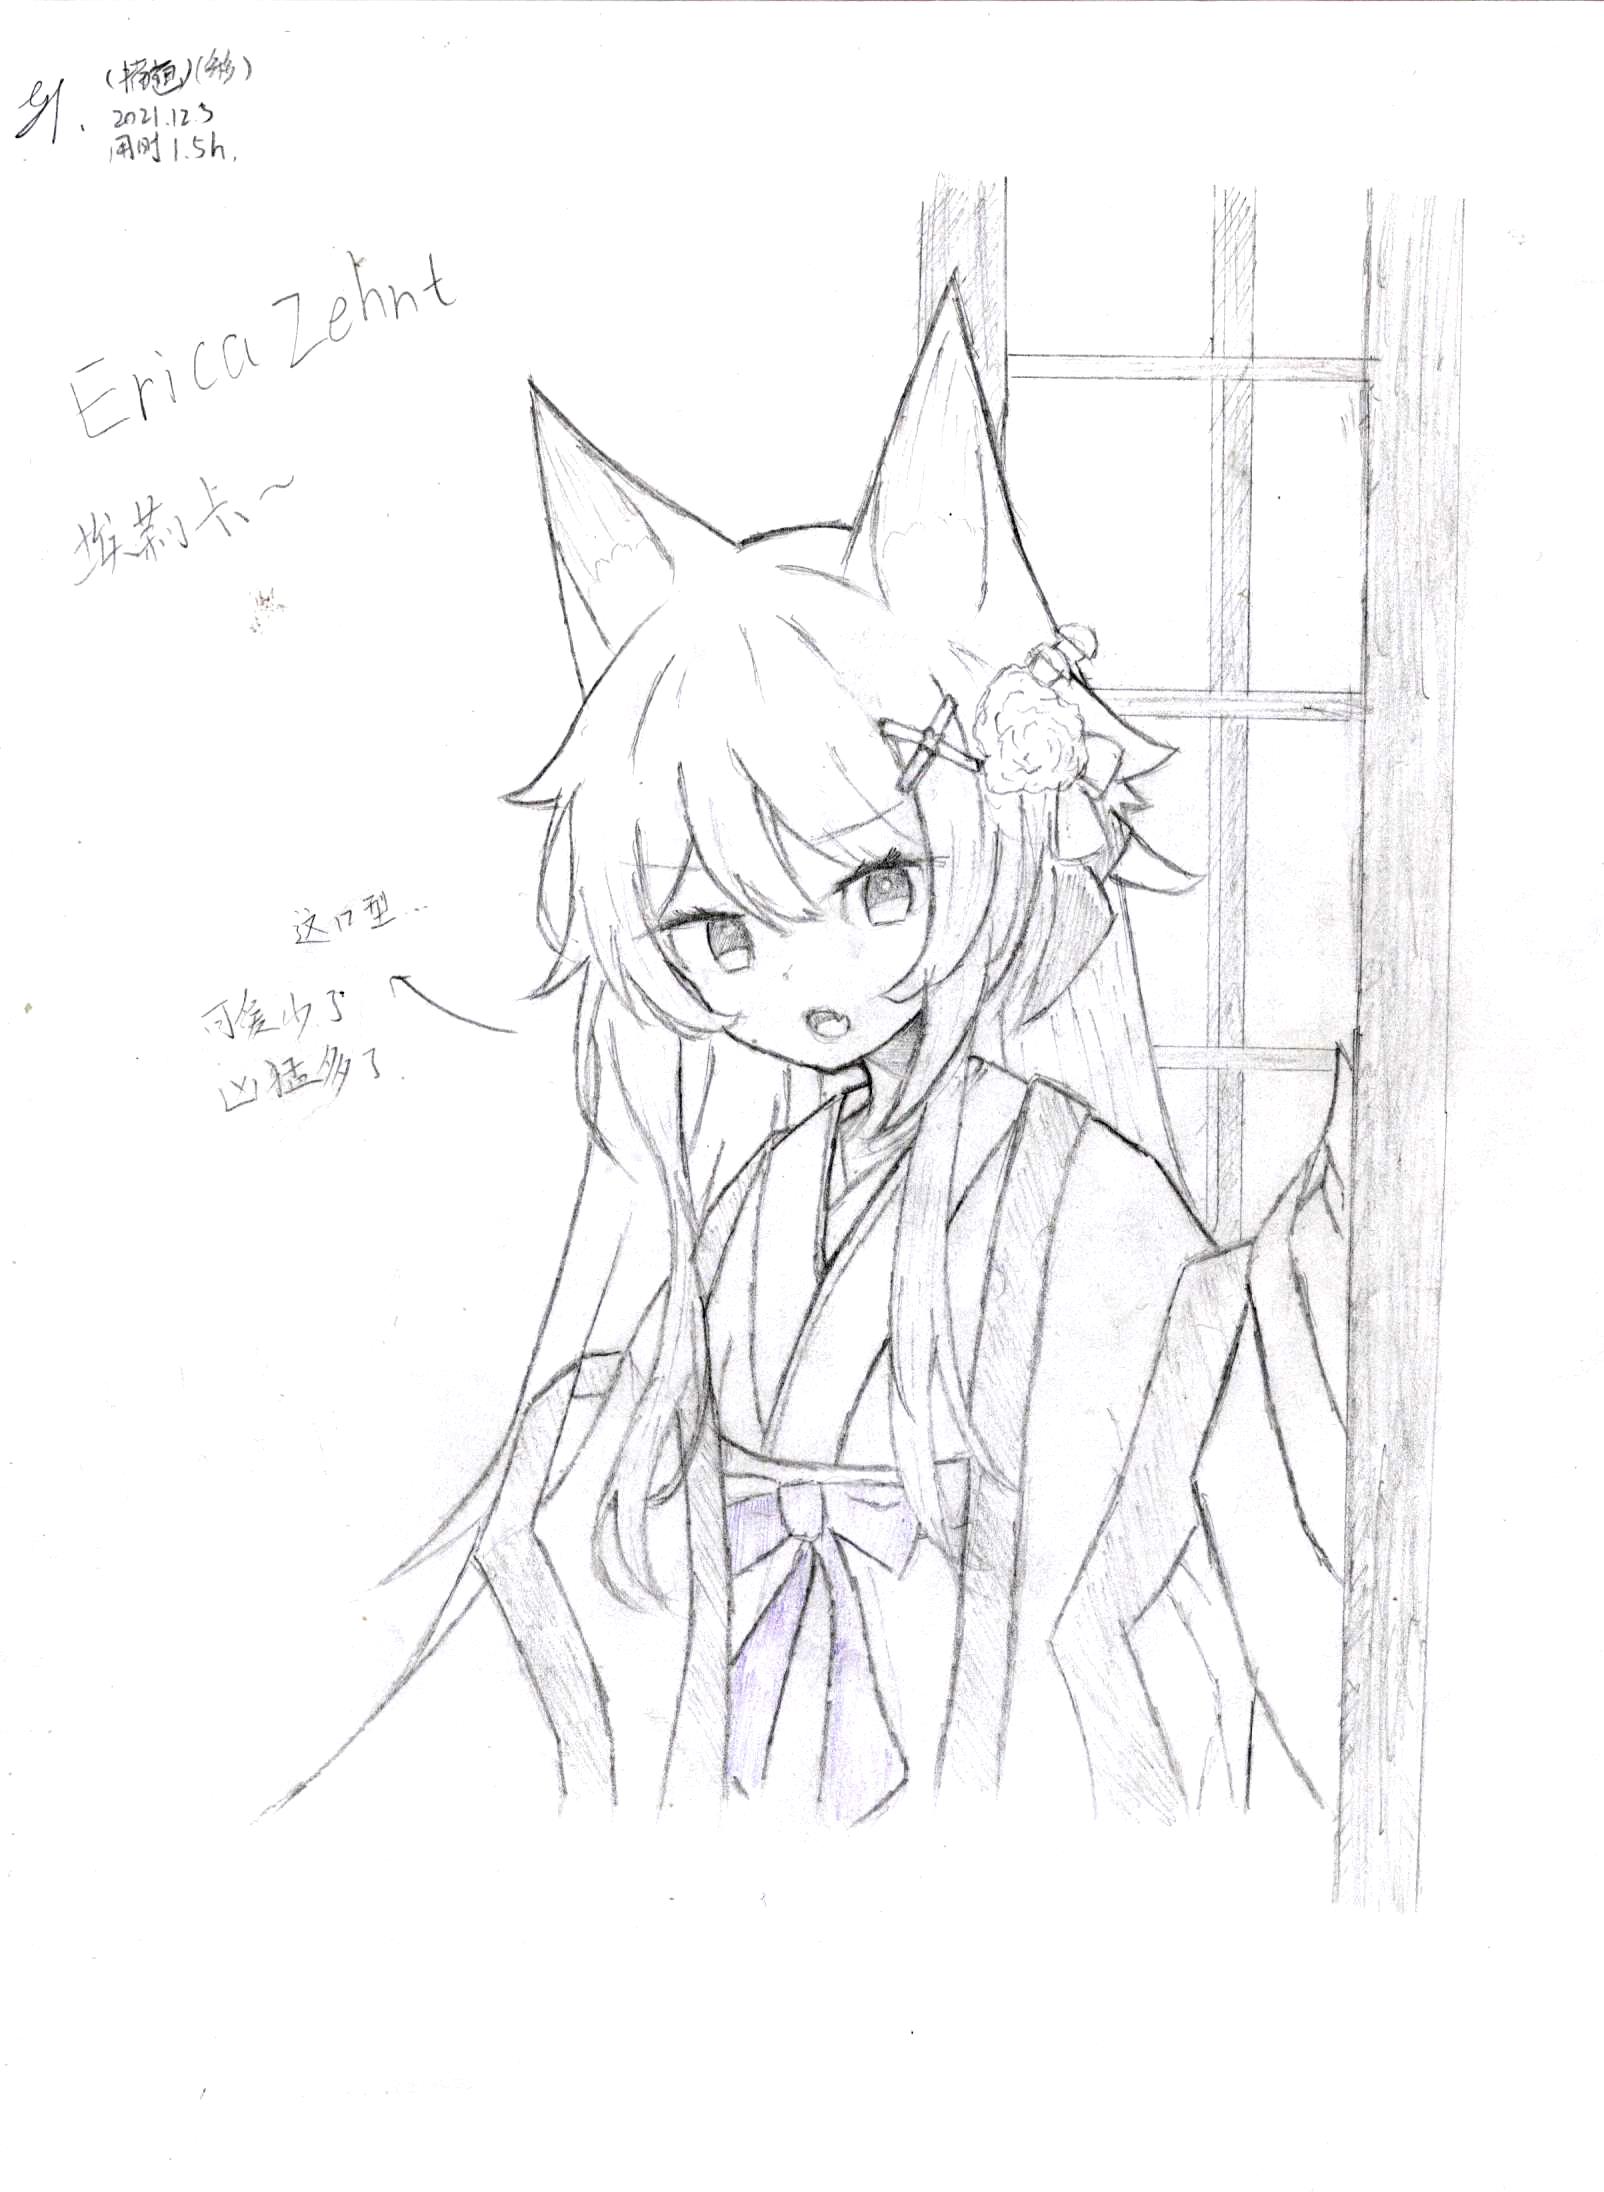 2021.12.3
用时1.5h.
Erica Zehnt
埃莉卡~
这口型...
可爱少了
凶猛多了.